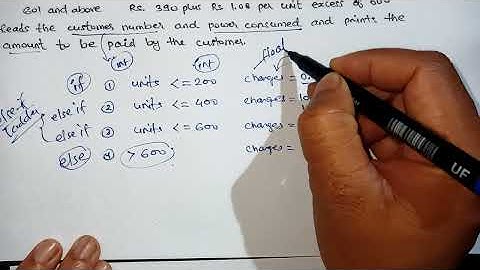 601 and above Rs. 390 plus Rs 1.08 per unit excess of 600
reads the customer number and power consumed and prints the
amount to be paid by the customer.
int int float
if 1 units <= 200 charges = 0.
else if 2 units <= 400 charges = 10
else if 3 units <= 600 charges =
else 4 > 600 charges =
else-if
ladder
UF